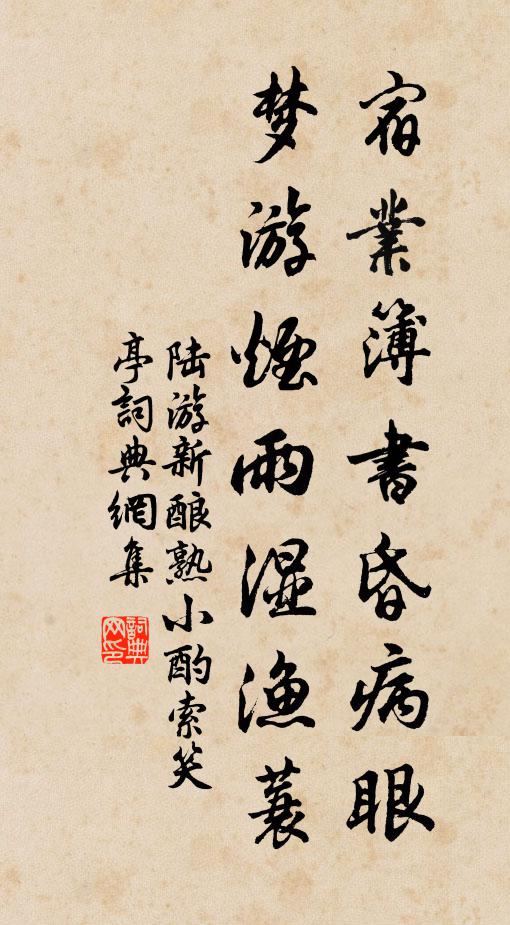 宿業簿書昏病眼
梦游煙雨湿渔蓑
陆游新酿熟小酌索笑
亭詞典網集
詞典网印